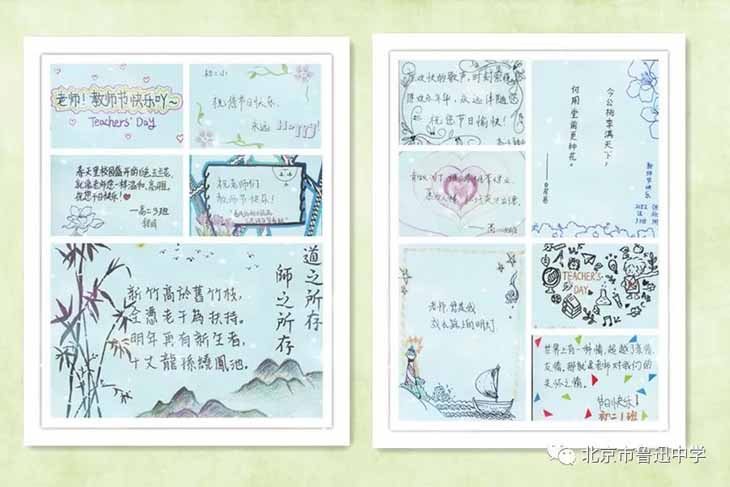 老师！教师节快乐吖~
Teachers' Day
初二小
祝您节日快乐
永远 Happy!
春天里校园盛开的白色玉兰花，
就像老师您一样温和、高雅。
祝您节日快乐！
祝老师们
教师节快乐！
道之所存
師之所存
新竹高於舊竹枝，
全憑老干為扶持。
明年再有新生者，
十丈龍孫繞鳳池。
永远伴随您
祝您节日愉快！
今公桃李满天下，
何用堂前更种花。
教师节快乐
老师，您是我
成长路上的明灯。
TEACHER'S
DAY
世界上有一种情，超越了亲情、
友情。那就是老师对我们的
关怀之情。
节日快乐！
初二1班
北京市鲁迅中学